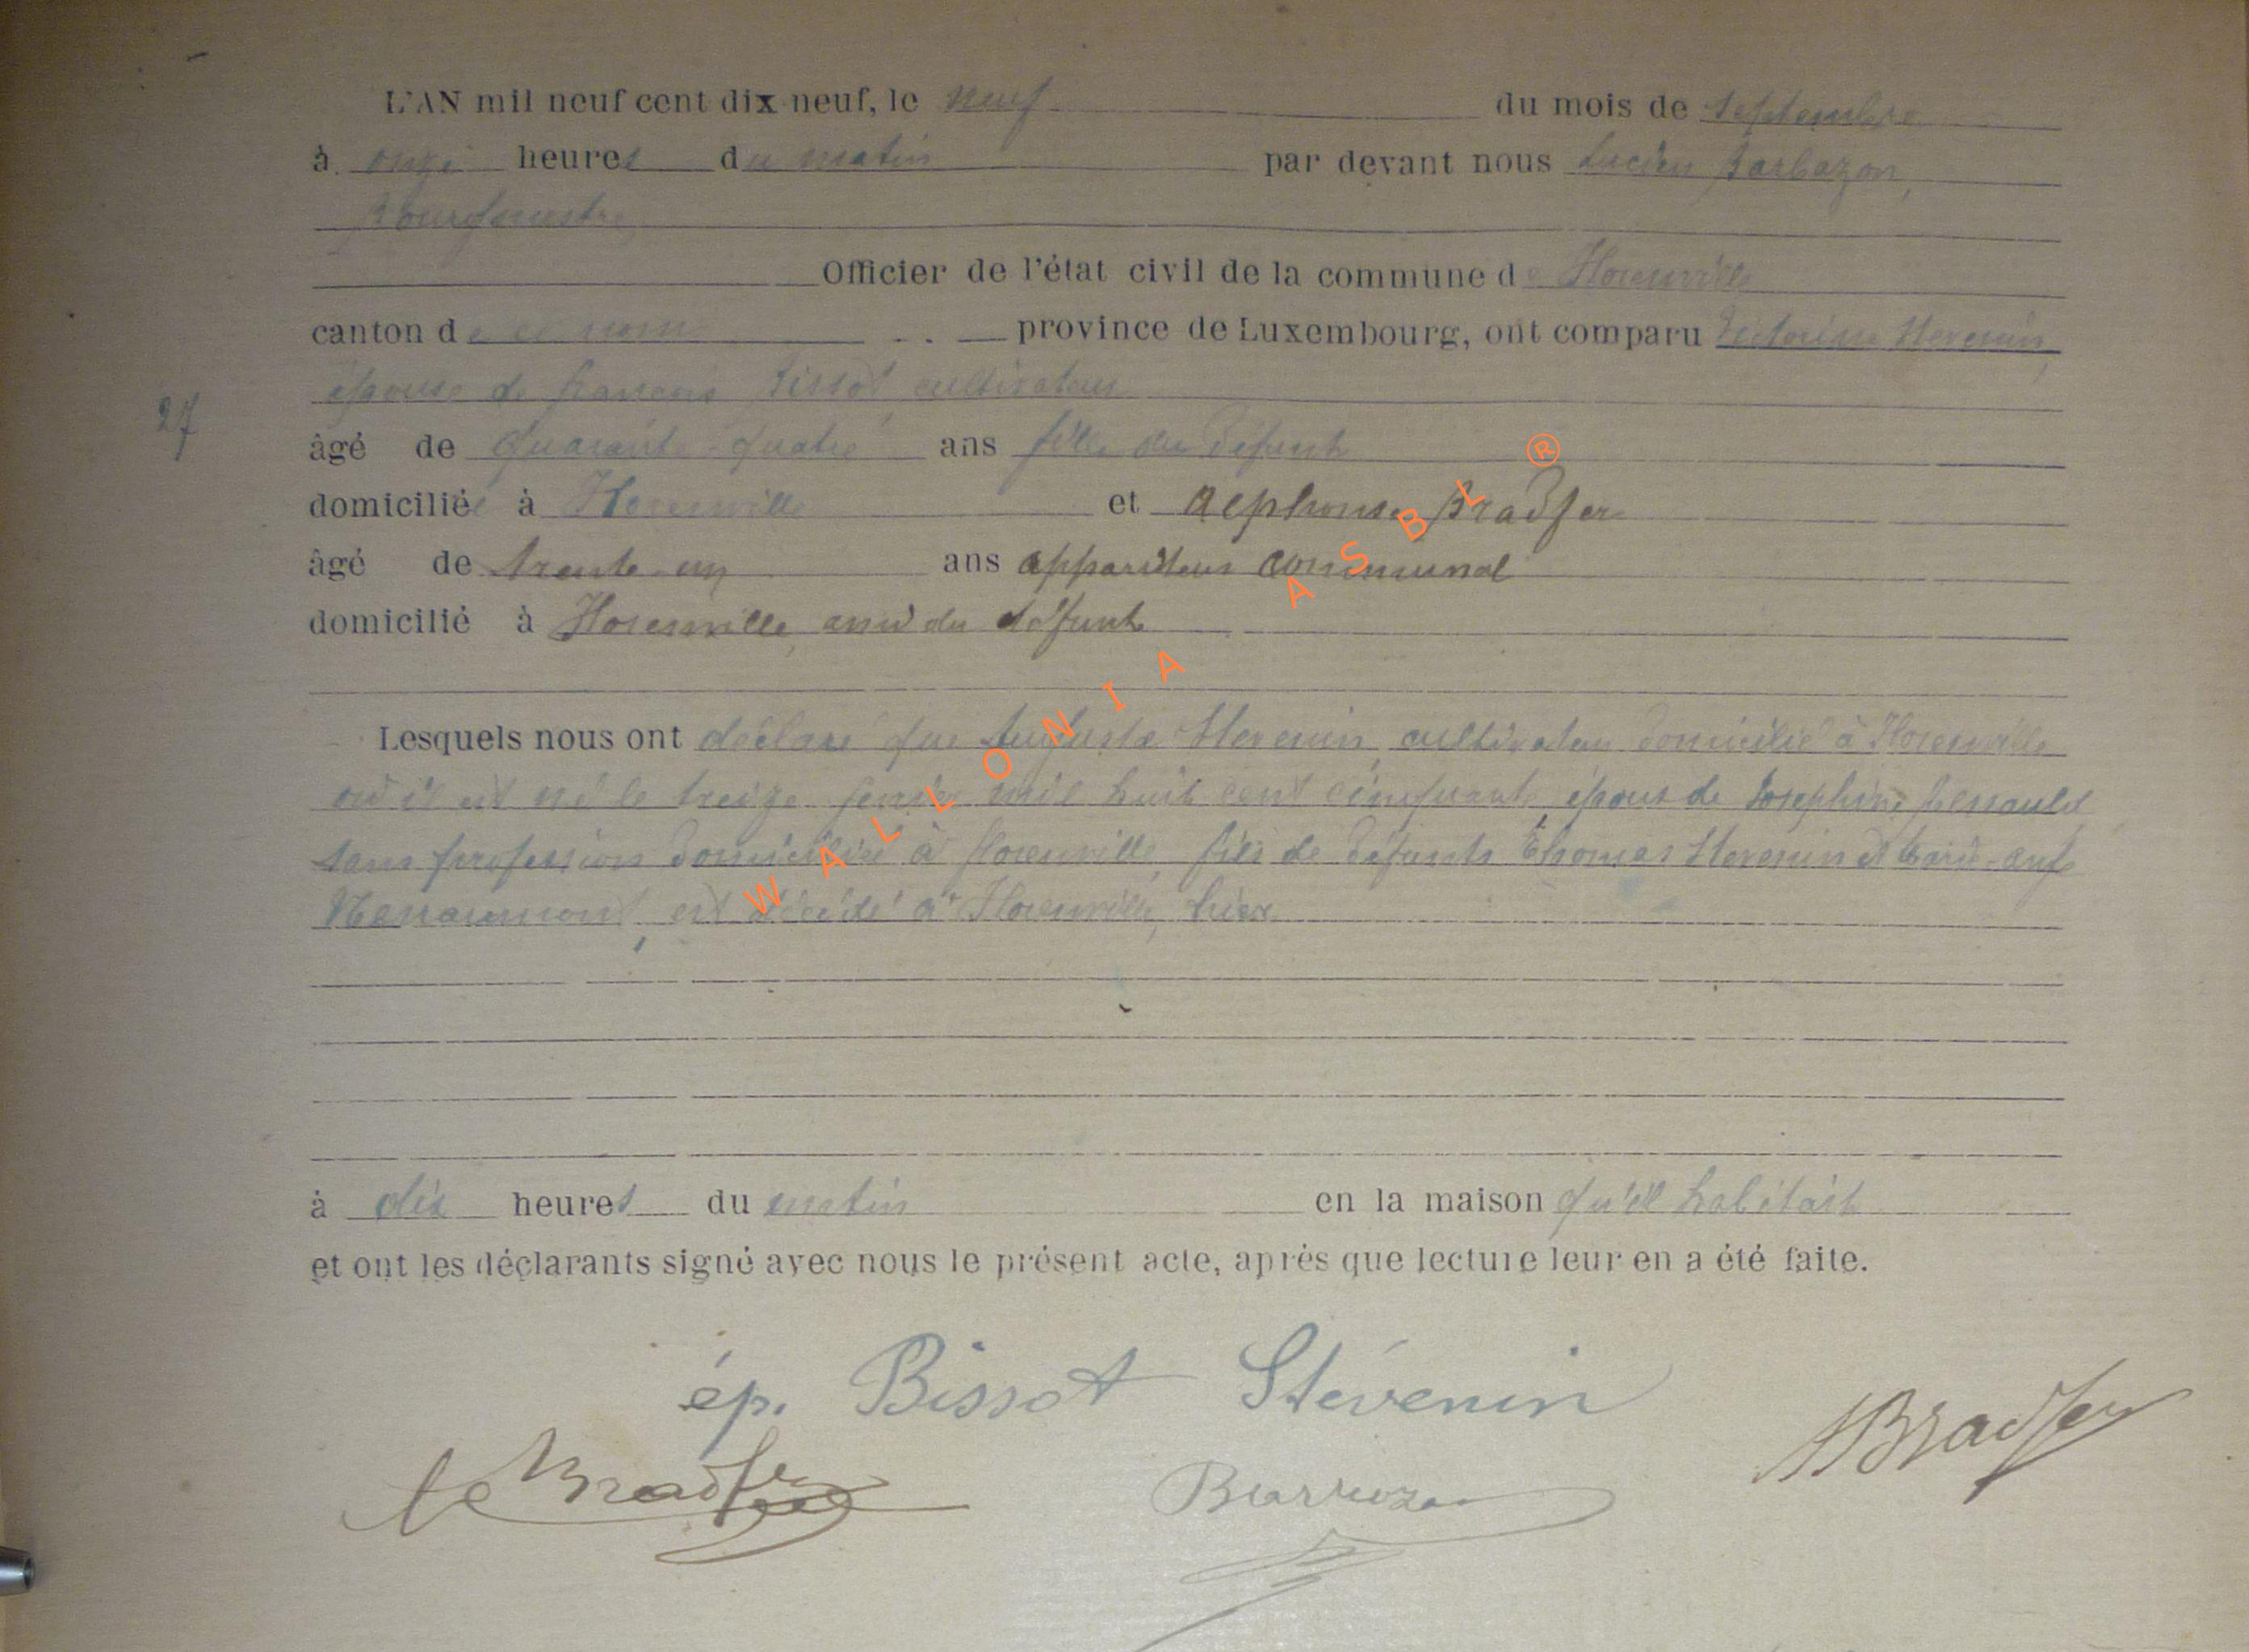 L'AN mil neuf cent dix neuf, le neuf du mois de septembre
à onze heures du matin par devant nous Lucien Barbazon,
Bourgmestre
Officier de l'état civil de la commune de Florenville
canton de ce nom province de Luxembourg, ont comparu Victorine Stevenin,
épouse de François Bissot, cultivateur
27
âgé de quarante-quatre ans fille du défunt
domiciliée à Florenville et Alphonse Bradfer
âgé de trente-un ans appariteur communal
domicilié à Florenville, ami du défunt
Lesquels nous ont déclaré que Auguste Stevenin, cultivateur domicilié à Florenville
où il est né le treize janvier mil huit cent cinquante, époux de Joséphine
sans profession domiciliée à Florenville, fils de défunts Thomas Stevenin et
est décédé à Florenville, hier
à dix heures du matin en la maison qu'il habitait
et ont les déclarants signé avec nous le présent acte, après que lecture leur en a été faite.
ép. Bissot Stévenin
ABradfer
Bradfer
Barbazon
WALLONIA ASBL ®